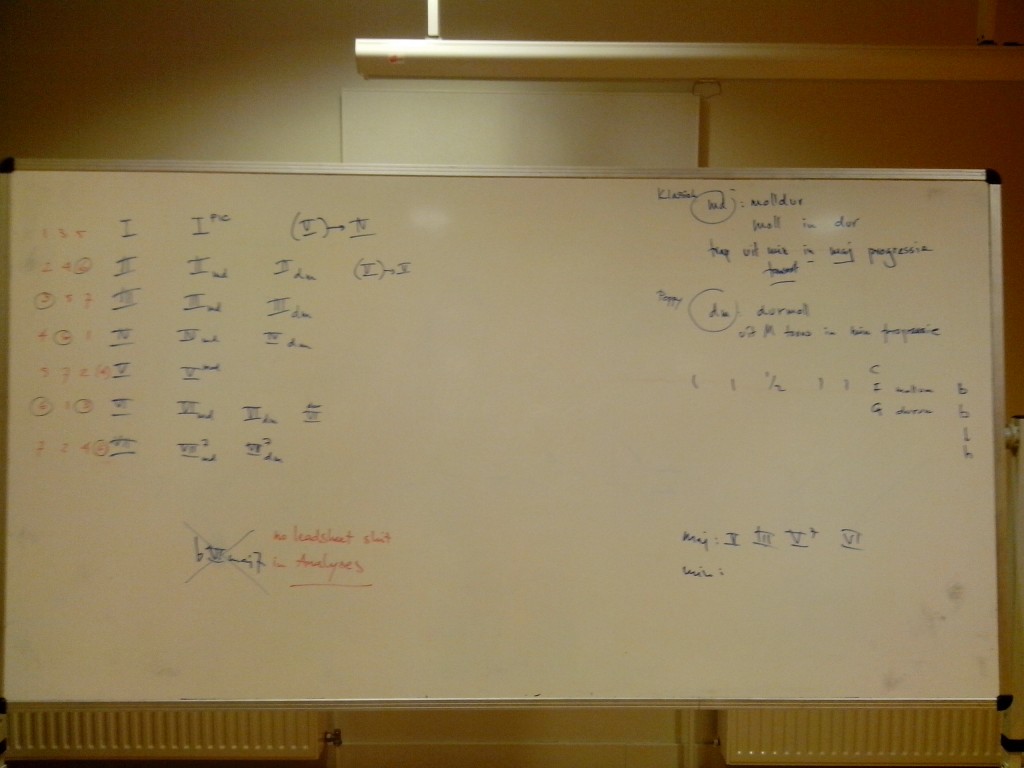 1 3 5 I I PIC (V) → IV
2 4 6 II II md II dm (V) → V
3 5 7 III III md III dm
4 6 1 IV IV md IV dm
5 7 2 (4) V V md
6 1 3 VI VI md VI dm VI
7 2 4 6 VII VII 7 md VII 7 dm
b VII maj7
no leadsheet shit
in Analyses
Klassiek md : molldur
moll in dur
trap uit min in maj progressie
Poppy dm : durmoll
uit M toons in min progressie
1 1 1/2 1 1
C
I mollum b
G durum b
h
maj : V III V 7 VI
min :